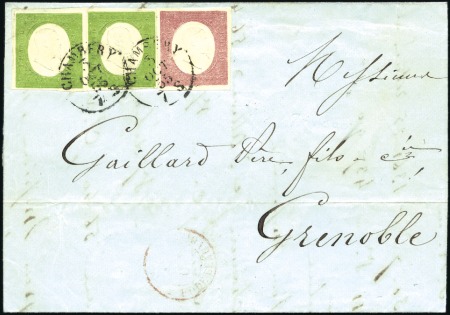 CHAMBERY
CHAMBERY
Messieurs
Gaillard Père, fils & Cie
Grenoble